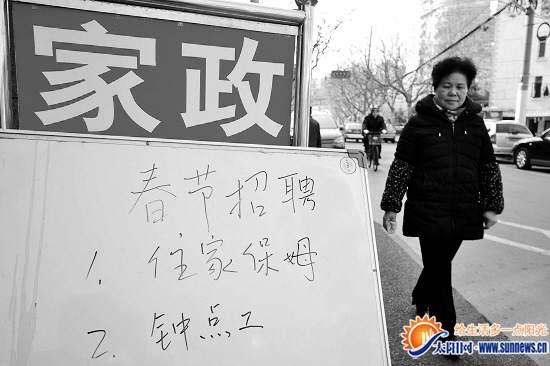 家政
春节招聘
1. 住家保姆
2. 钟点工
给生活多一点阳光
太阳网·www.sunnews.cn